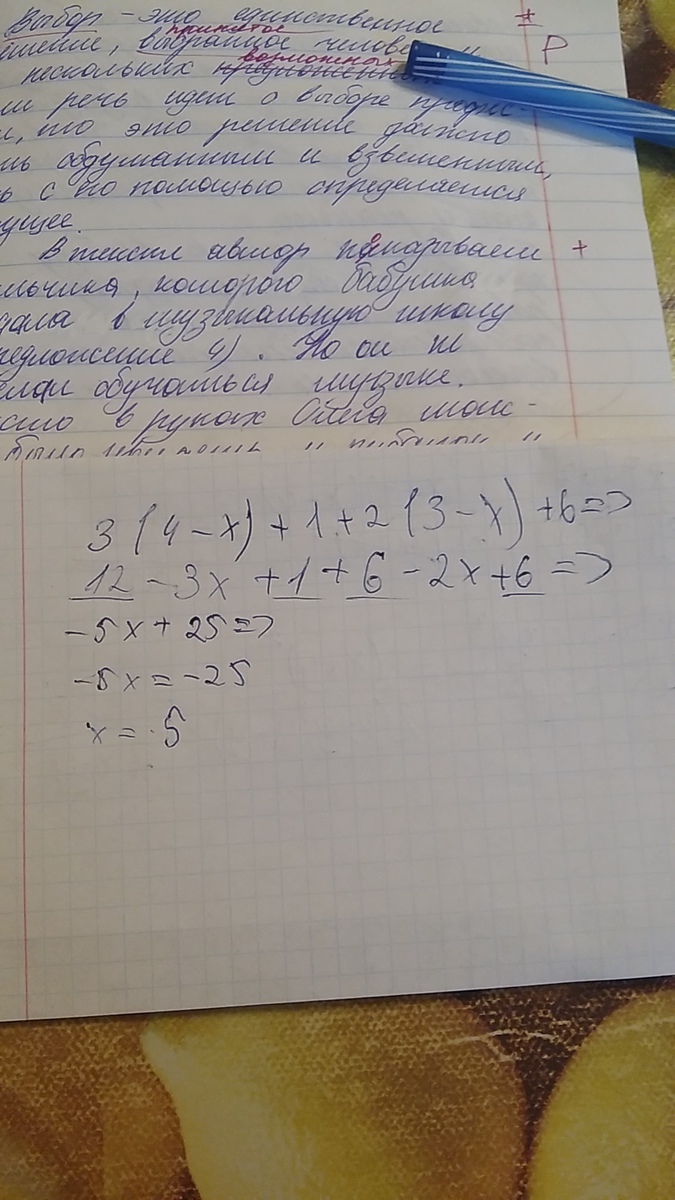 Выбор - это единственное
принятое
шение, выбранное челове
возможных
нескольких
речь идет о выборе
то это решение должно
обдуманным и взвешенным,
с его помощью определяется
ущее.
В тексте автор показывает +
льчика, которого бабушка
дала в музыкальную школу
редложение 4). Но он не
елал обучаться музыке.
в руках Олега
3(4-x)+1+2(3-x)+6=>
12-3x+1+6-2x+6=>
-5x+25=>
-5x=-25
x=5